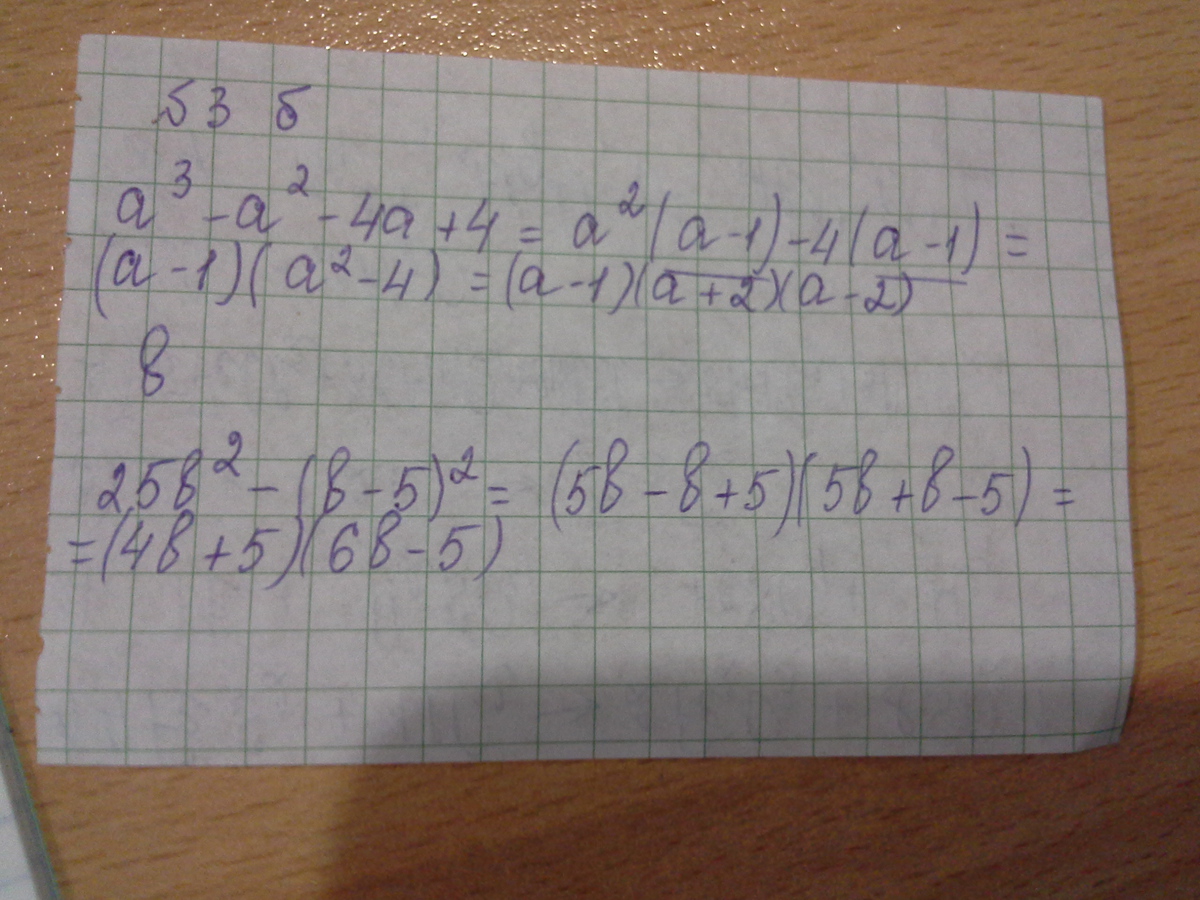 53 б
a³ - a² - 4a + 4 = a²(a - 1) - 4(a - 1) =
(a - 1)(a² - 4) = (a - 1)(a + 2)(a - 2)
в
25b² - (b - 5)² = (5b - b + 5)(5b + b - 5) =
= (4b + 5)(6b - 5)